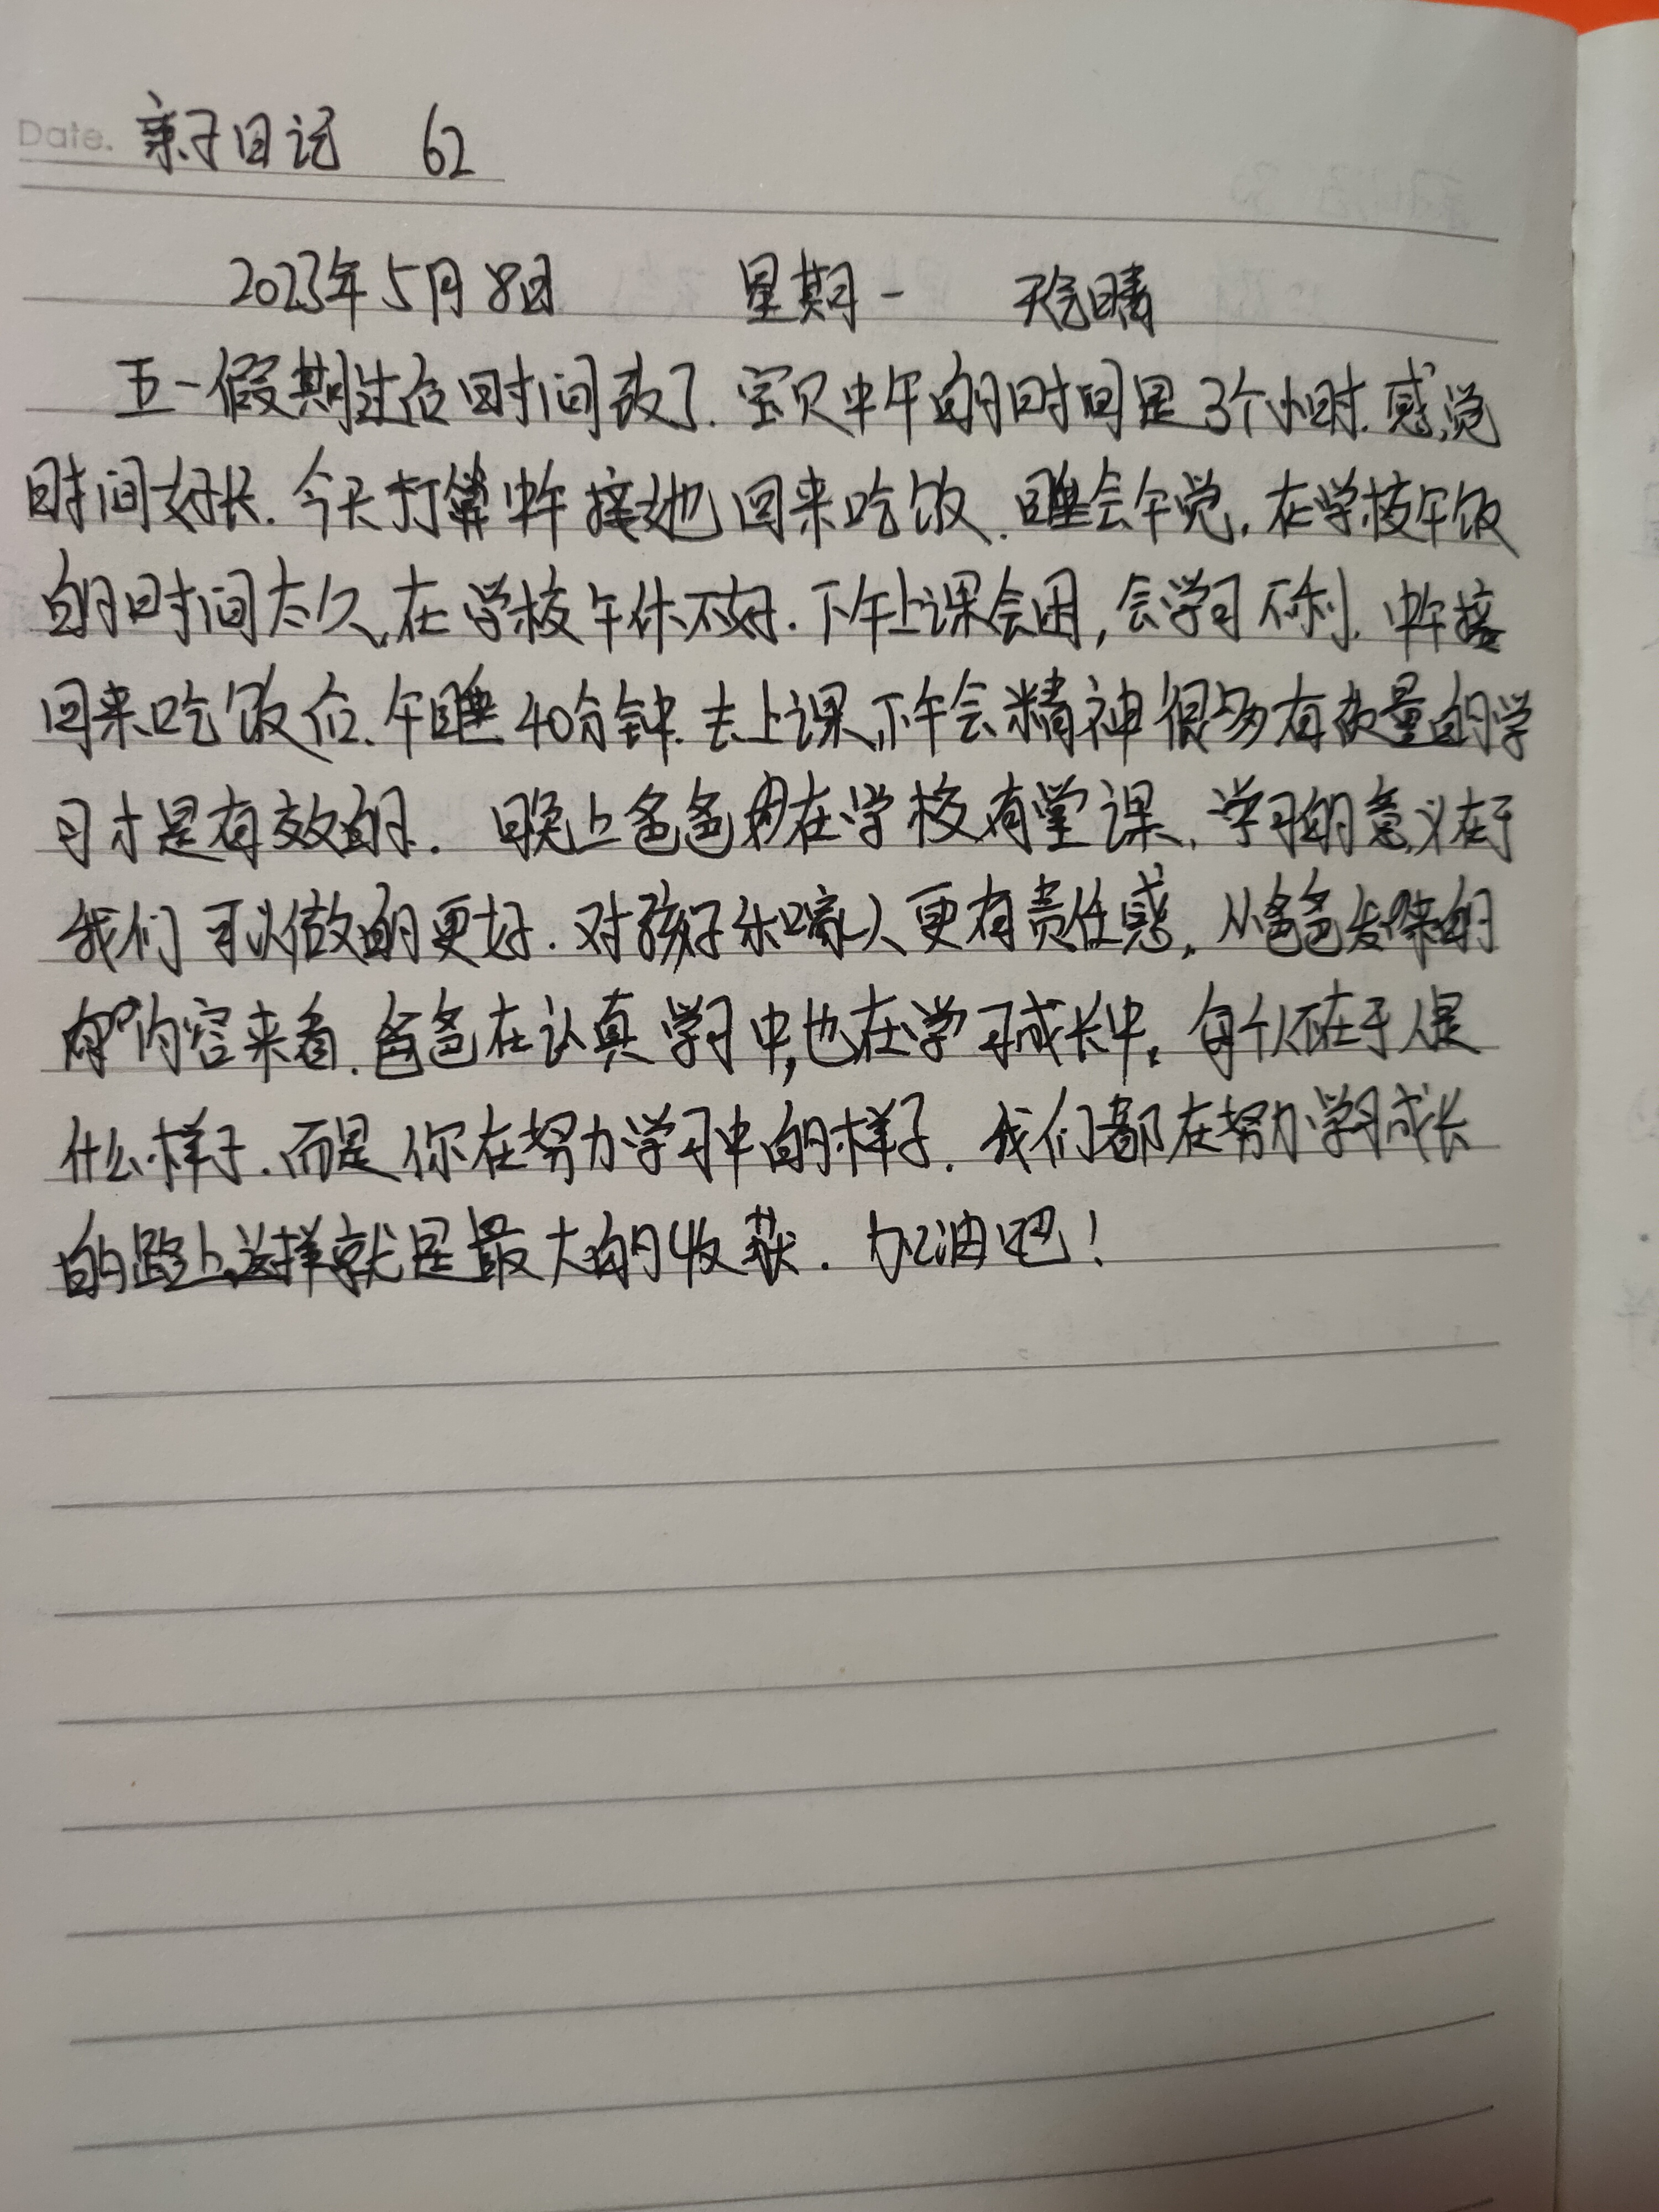 Date. 亲子日记 62
2023年5月8日 星期一 天气晴
五一假期过后时间改了.宝贝中午的时间是3个小时.感觉
时间好长.今天打算中午接她回来吃饭.睡会午觉.在学校午饭
的时间太久,在学校午休不好.下午上课会困,会学习不利.中午接
回来吃饭后.午睡40分钟.去上课,下午会精神很多有质量的学
习才是有效的. 晚上爸爸在学校有堂课.学习的意义在于
我们可以做的更好.对孩子和家人更有责任感.从爸爸发来的
内容来看.爸爸在认真学习中,也在学习成长中.每个人不在于人是
什么样子.而是你在努力学习中的样子.我们都在努力学习成长
的路上,这样就是最大的收获.加油吧!